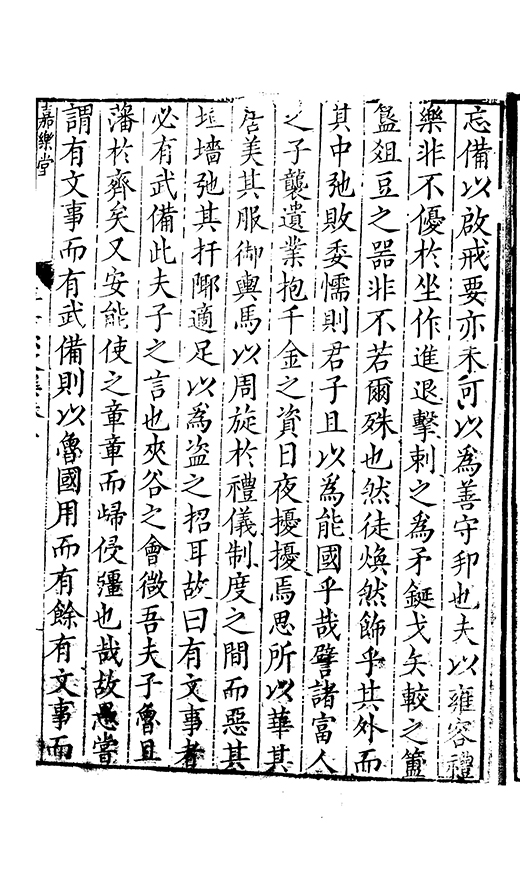 忘備以啟戒要亦未可以為善守邦也夫以雍容禮
樂非不優於坐作進退擊刺之為矛鋋戈矢較之簠
簋俎豆之器非不若爾殊也然徒煥然飾乎其外而
其中弛敗委懦則君子且以為能國乎哉譬諸富人
之子襲遺業抱千金之資日夜擾擾焉思所以華其
居美其服御輿馬以周旋於禮儀制度之間而惡其
垣墻弛其扞陬適足以為盗之招耳故曰有文事者
必有武備此夫子之言也夾谷之會微吾夫子魯且
藩於齊矣又安能使之章章而歸侵疆也哉故愚嘗
謂有文事而有武備則以魯國用而有餘有文事而
嘉樂堂